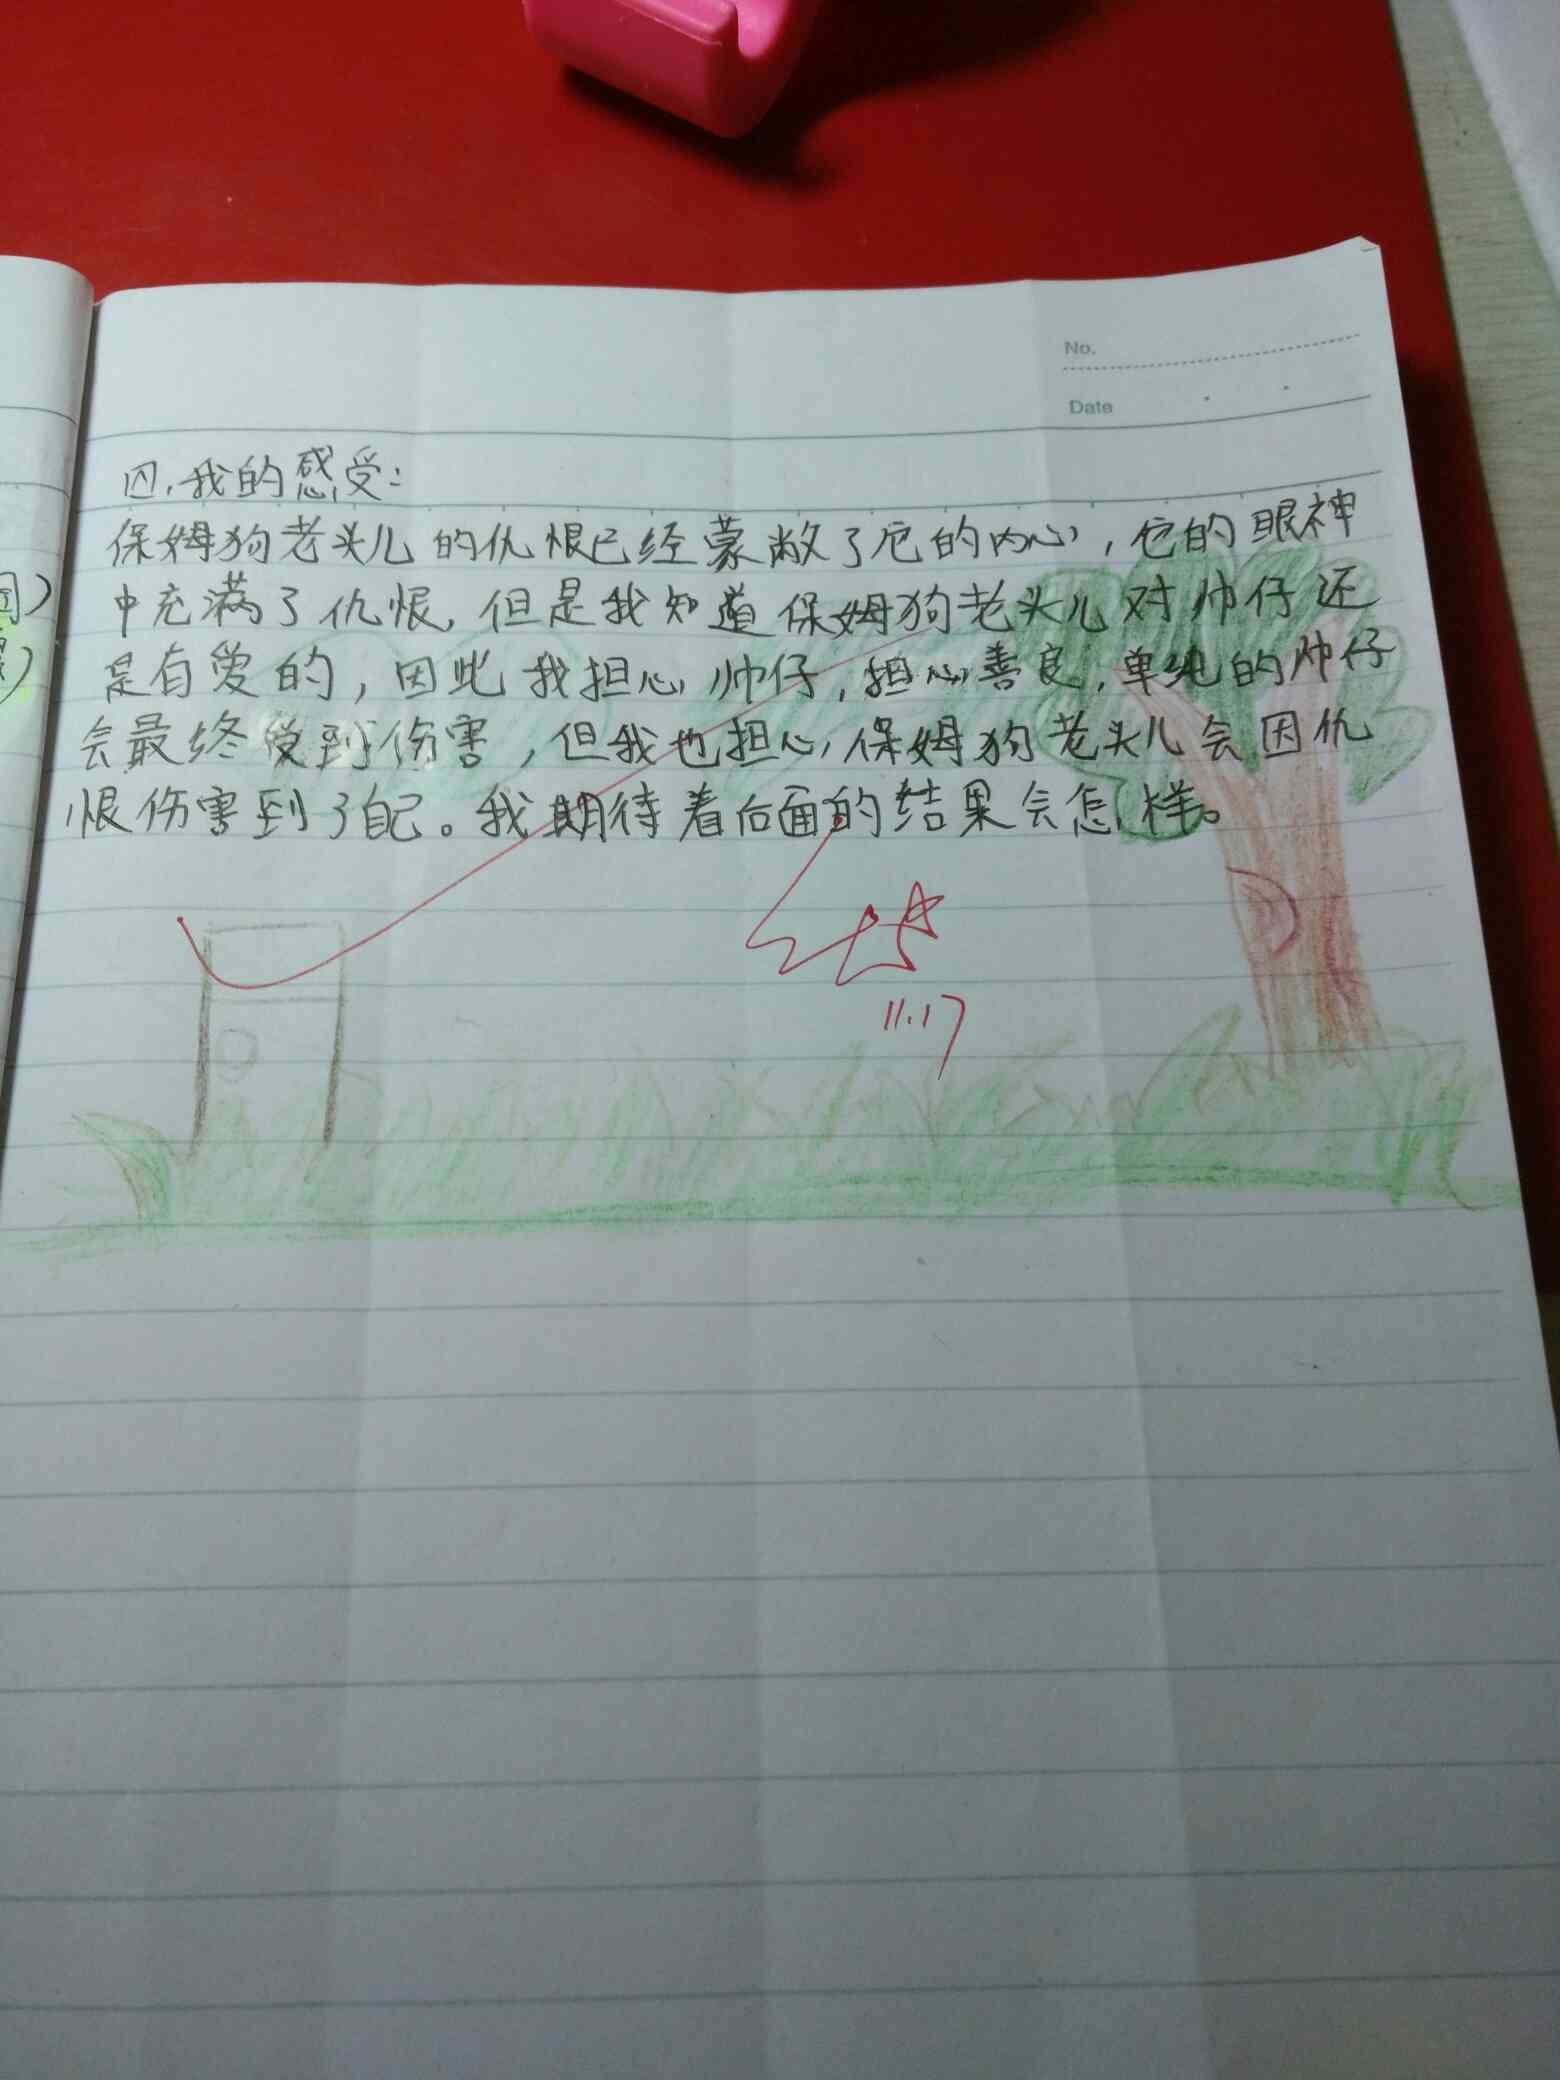 No.
Date
四.我的感受:
保姆狗老头儿的仇恨已经蒙敝了它的内心,它的眼神
中充满了仇恨,但是我知道保姆狗老头儿对帅仔还
是有爱的,因此我担心帅仔,担心善良,单纯的帅仔
会最终受到伤害,但我也担心保姆狗老头儿会因仇
恨伤害到了自己。我期待着后面的结果会怎样。
11.17